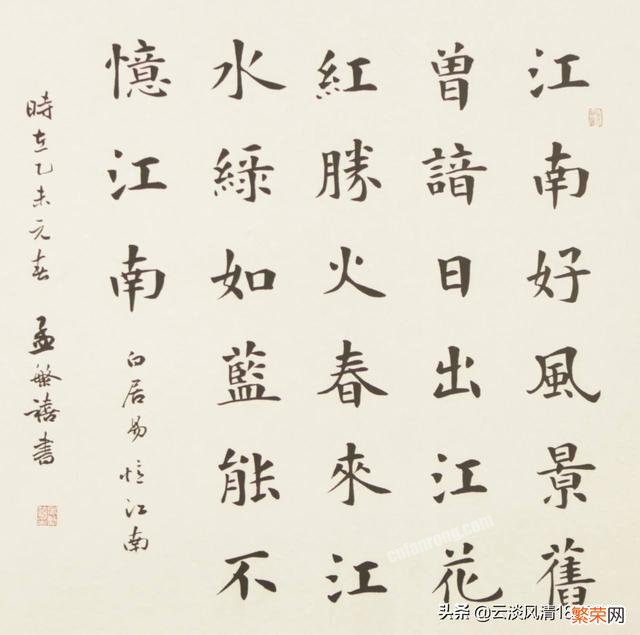 江南好風景舊
曾諳日出江花
紅勝火春來江
水綠如藍能不
憶江南
白居易憶江南
時在乙未元春 孟繁禧書
cnfanrong.com
头条 @云淡风清18
繁荣网